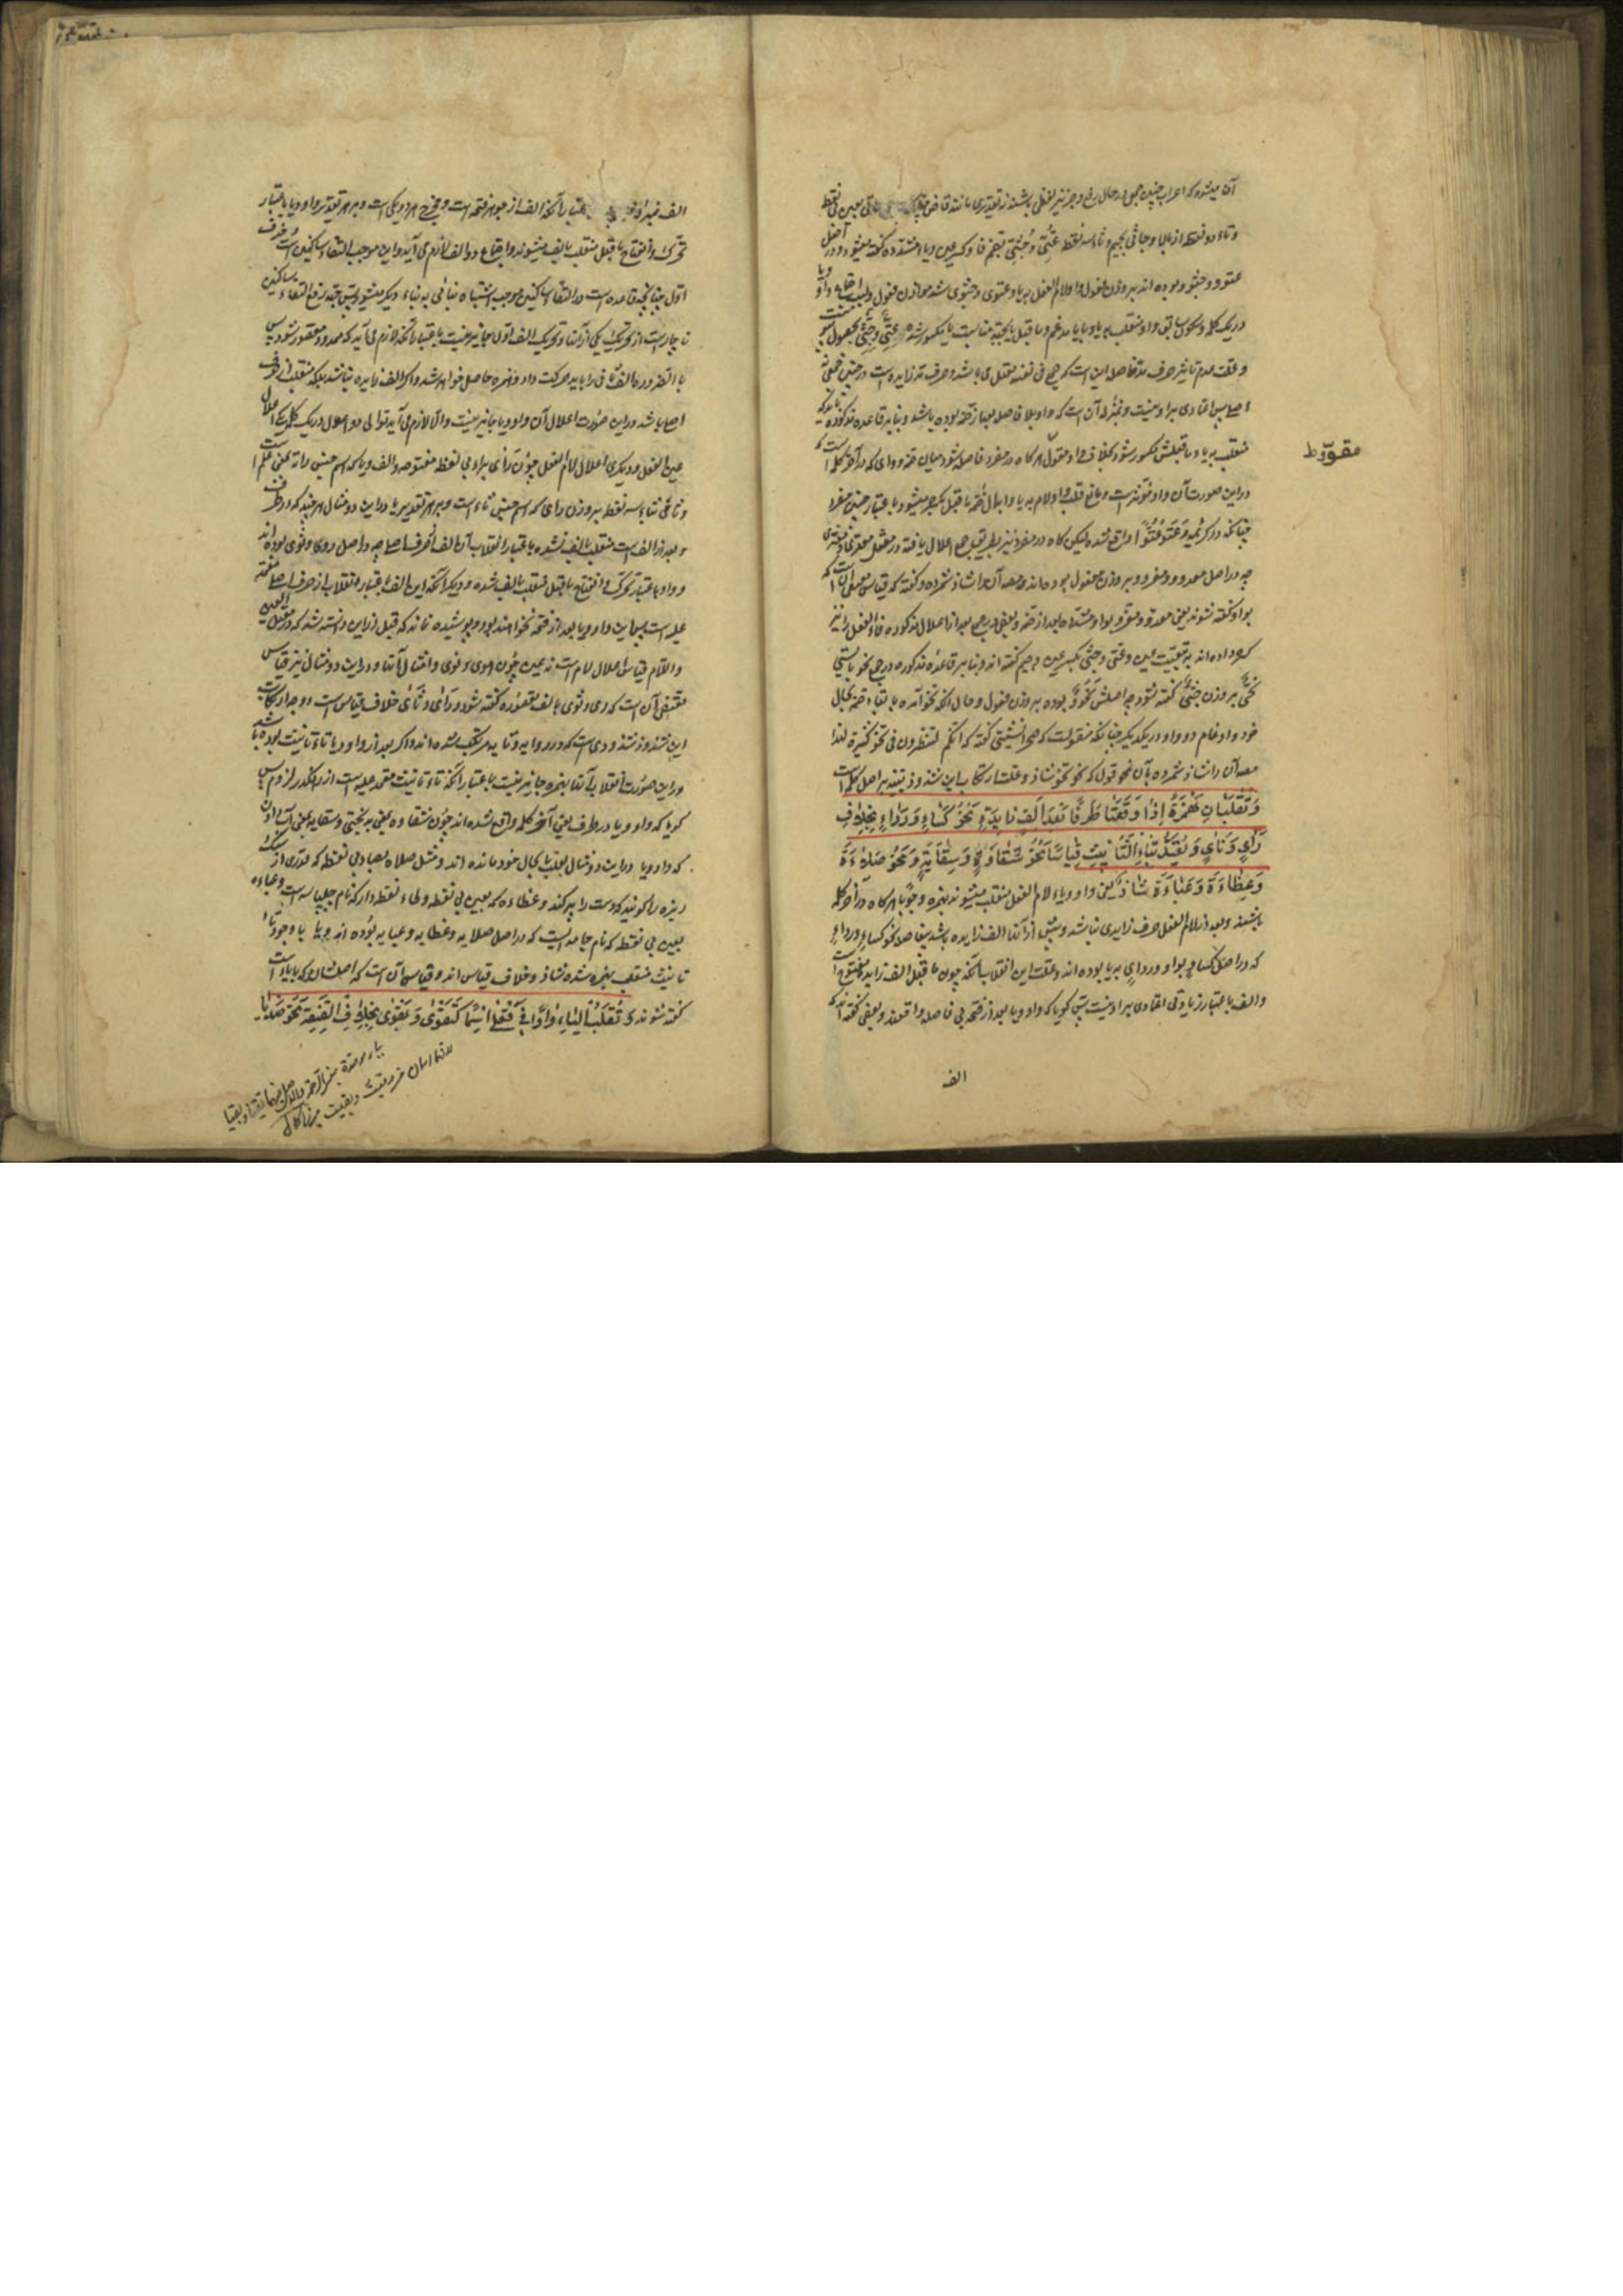 آن میشود که اعراب چنین جمع در حال رفع و جر نیز لفظی باشند نه تقدیری مانند قاض
و تاء دو نقطه از بالا و جاثی بجیم و ثاء سه نقطه عُتِیّ و جُثِیّ بضم فا و کسر عین و یاء مشدده گفته میشود و در اصل
عتوو و جثوو بوده اند بر وزن فعول واو لام الفعل به یا و عتوی و جثوی شد موازن فعول
در یک کلمه و سکون سابق واو منقلب به یا و یا در یا مدغم و ما قبل یا بجهة مناسبت یا مکسور شده عتی و جثی بحصول
و علت عدم تاثیر حرف مد فاصل این است که جمع فی نفسه ثقیل می باشد و حرف مد زایده است در چنین
اصلا پس اعتدادی بر او نیست و بمنزله آن است که واو بلا فاصله بعد از ضمه بوده باشد و بنا بر قاعده مذکوره
منقلب به یا و ما قبلش مکسور شود بخلاف واو مفرد هر گاه در مفرد فاصله شود میان ضمه و واوی که در آخر کلمه است
مقوّرط
در این صورت آن واو مانع قلب واو لام به یا و ابدال ضمه ما قبل بکسر میشود باعتبار خفت مفرد
چنانکه در کریمه وَعَتَوْ عُتُوًّا واقع شده لیکن گاه در مفرد نیز بطریق جمع اعلال یافته در مثل معدی و مغزی
چه در اصل معدوو و مغزوو بر وزن مفعول بوده اند و مصـ آن را شاذ شمرده و گفته که قیاس مقتضی آن است که
بواو گفته شوند یعنی معدوّ و مغزوّ بواو مشدده بعد از ضمه و بعضی در جمع بعد از اعلال مذکور فاء الفعل را نیز
کسره داده اند به تبعیت عین و عتی و جثی بکسر عین و جیم گفته اند و بنا بر قاعده مذکوره در جمع نحو بایستی
نُحِیّ بر وزن جثی گفته شود چه اصلش نحوو بوده بر وزن فعول و حال آنکه نحوّ آمده با بقاء ضمه بحال
خود و ادغام دو واو در یکدیگر چنانکه منقولست که صحرا نشینی گفته که انکم لتنظرون فی نحوّ کثیرة لهذا
مصـ آن را شاذ شمرده بآن نحو قول که نحو نحوّ شاذ و علت ارتکاب این شذوذ تنبیه بر اصل کلمه است
وَتُقْلَبَانِ هَمْزَةً إِذَا وَقَعَتَا طَرَفًا بَعْدَ أَلِفٍ زَایِدَةٍ نَحْوُ کِسَاءٍ وَرِدَاءٍ بِخِلَافِ
رَایٍ وَثَایٍ وَیُعْتَدُّ بِتَاءِ التَّأْنِیثِ قِیَاسًا نَحْوُ شَقَاوَةٍ وَسِقَایَةٍ وَنَحْوُ صَلَاءَةَ
وَعَظَاءَةَ وَعَبَاءَةَ شَاذٌّ یعنی واو و یاء لام الفعل منقلب میشوند بهمزه وجوبا هر گاه در آخر کلمه
باشند و بعد از لام الفعل حرف زایدی نباشد و پیش از آنها الف زایده باشد بیفاصله نحو کساء و رداء
که در اصل کساو بواو و ردای به یا بوده اند و علت این انقلاب آنکه چون ما قبل الف زایده مفتوح است
و الف باعتبار زیادتی اعتدادی بر او نیست پس گویا که واو و یا بعد از فتحه بی فاصله واقعند و بعضی گفته اند که
الف
باعتبار آنکه الف از جوهر فتحه است و مخرج هر دو یکی است و بر هر تقدیر واو و یا باعتبار
تحرک و انفتاح ما قبل منقلب بالف میشوند و اجتماع دو الف لازم می آید و این موجب التقاء ساکنین است و حذف
اول چنانچه قاعده است در التقاء ساکنین موجب اشتباه بنائی به بناء دیگر میشود پس بجهة رفع التقاء ساکنین
ناچار است از تحریک یکی از آنها و تحریک الف اول جایز نیست باعتبار آنکه لازم می آید که ممدود مقصور شود پس
بالضروره الف ثانی را باید حرکت داد و همزه حاصل خواهد شد و اگر الف زایده نباشد بلکه منقلب از حرف
اصلی باشد در این صورت اعلال آن واو و یا جایز نیست و الا لازم می آید توالی دو اعلال در یک کلمه یکی اعلال
عین الفعل و دیگری اعلال لام الفعل چون رای براء بی نقطه مفتوحه و الف و یا که اسم جنس رایة بمعنی علم است
و ثای بثاء سه نقطه بر وزن رای که اسم جنس ثایة است و بر هر تقدیر یا در این دو مثال هر چند که در طرف
و بعد از الف است منقلب بالف نشده باعتبار انقلاب آن الف از حرف اصلی چه در اصل روی و ثوی بوده اند
و واو باعتبار تحرک و انفتاح ما قبل منقلب بالف شده و دیگر آنکه این الف باعتبار انقلاب از حرف اصلی
علیه است پس این واو و یا بعد از فتحه نخواهند بود و پوشیده نماند که قبل از این دانسته شد که در معتل العین
و اللام قیاس اعلال لام است نه عین چون هوی و نوی و امثال آنها و در این دو مثال نیز قیاس
مقتضی آن است که روی و ثوی بالف مقصوره گفته شود و رای و ثای خلاف قیاس است و وجه ارتکاب
این شذوذ شذوذی است که در رایه و ثایه مرتکب شده اند و اگر بعد از واو و یا تاء تانیث بوده باشد
در این صورت انقلاب آنها بهمزه جایز نیست باعتبار آنکه تاء تانیث معتمد علیه است از رهگذر لزوم پس
گویا که واو و یا در طرف یعنی آخر کلمه واقع نشده اند چون شقاوه یعنی بدبختی و سقایه یعنی آب دادن
که واو و یا در این دو مثال بحال خود مانده اند و مثل صلاءه بصاد بی نقطه که قدری از سنگ
ریزه را گویند که دست را پر کند و عظاءه که بعین بی نقطه و ظاء نقطه دار که نام چلپاسه است و عباءه
بعین بی نقطه که نام جامه ایست که در اصل صلایه و عظایه و عبایه بوده اند و یا با وجود تاء
تانیث منقلب بهمزه شده شاذ و خلاف قیاس اند و قیاس آن است که باصلشان که بایاء است
گفته شوند وَتُقْلَبُ الْیَاءُ وَاوًا فِی فَعْلَی اسْمًا کَتَقْوَی وَبَقْوَی بِخِلَافِ الصِّفَةِ نَحْوُ صَدْیَا